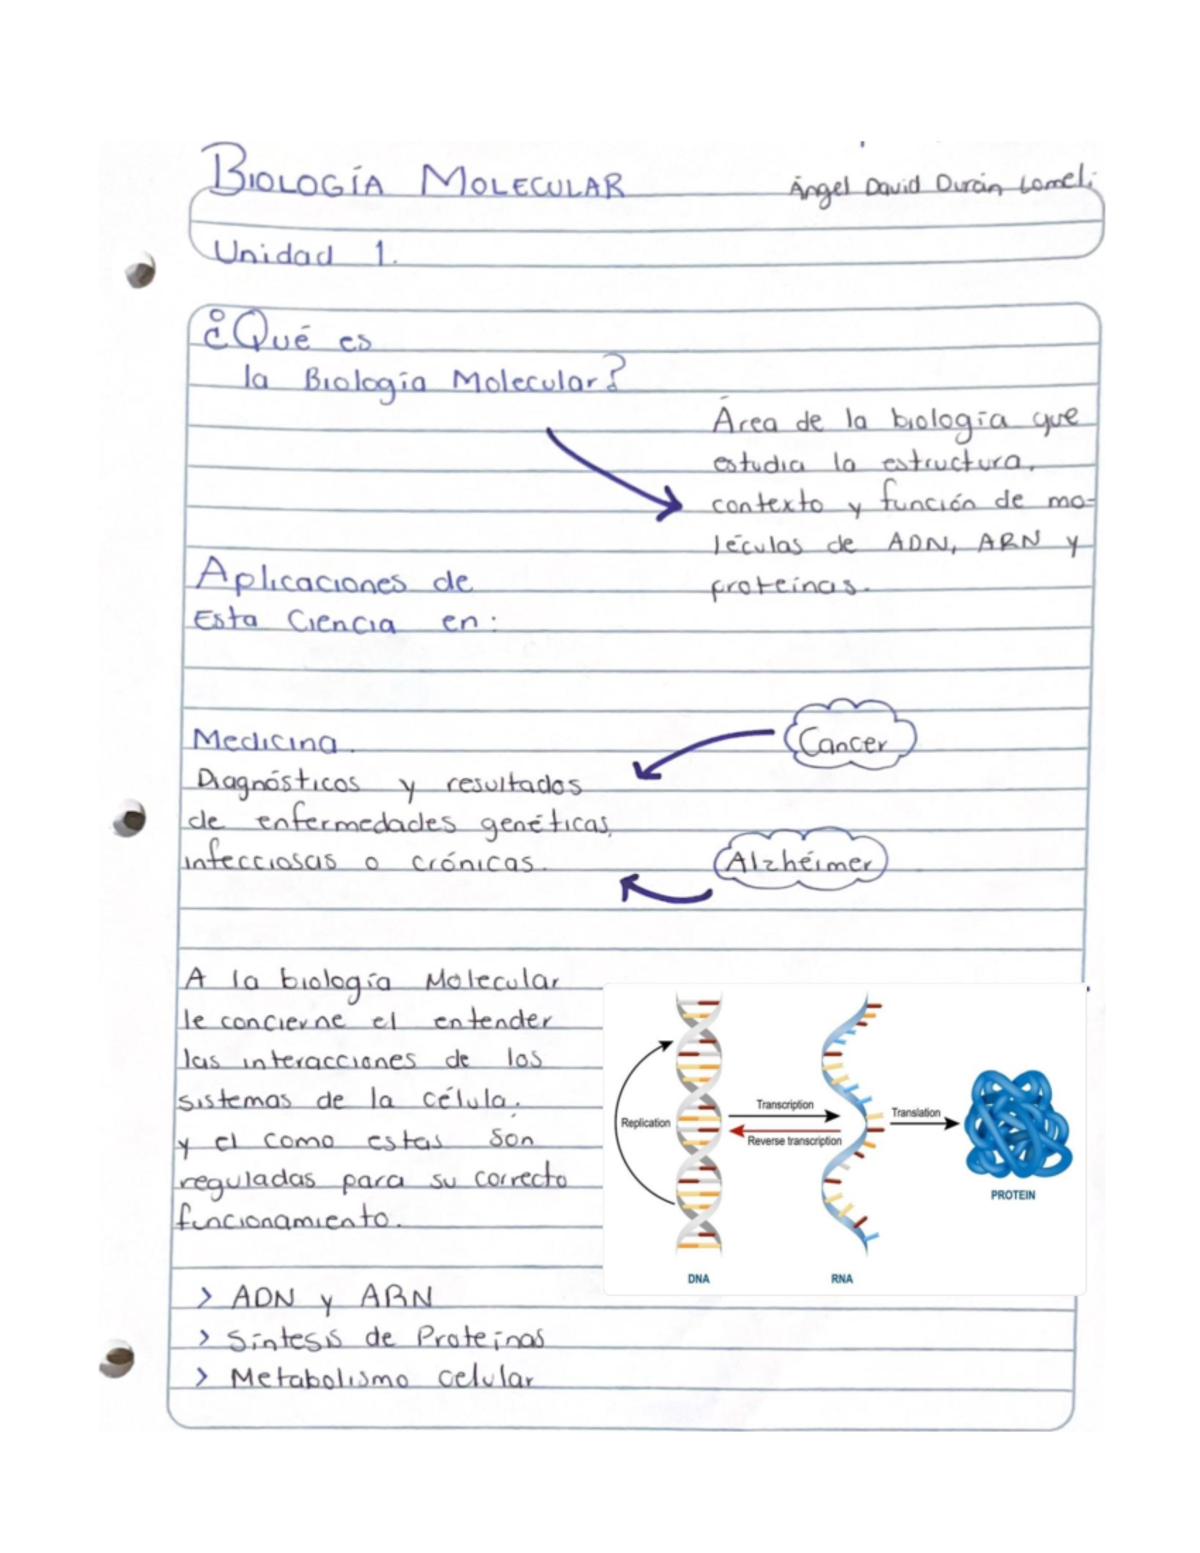 BIOLOGÍA MOLECULAR
Ángel David Durán Lomelí
Unidad 1.
¿Qué es
la Biología Molecular?
Área de la biología que
estudia la estructura,
contexto y función de mo=
léculas de ADN, ARN y
proteínas.
Aplicaciones de
Esta Ciencia en:
Medicina.
Cancer
Diagnósticos y resultados
de enfermedades genéticas,
infecciosas o crónicas.
Alzhéimer
A la biología Molecular
le concierne el entender
las interacciones de los
sistemas de la célula.
y el como estas son
reguladas para su correcto
funcionamiento.
Replication
Transcription
Reverse transcription
Translation
PROTEIN
DNA
RNA
> ADN y ARN
> Síntesis de Proteínas
> Metabolismo celular